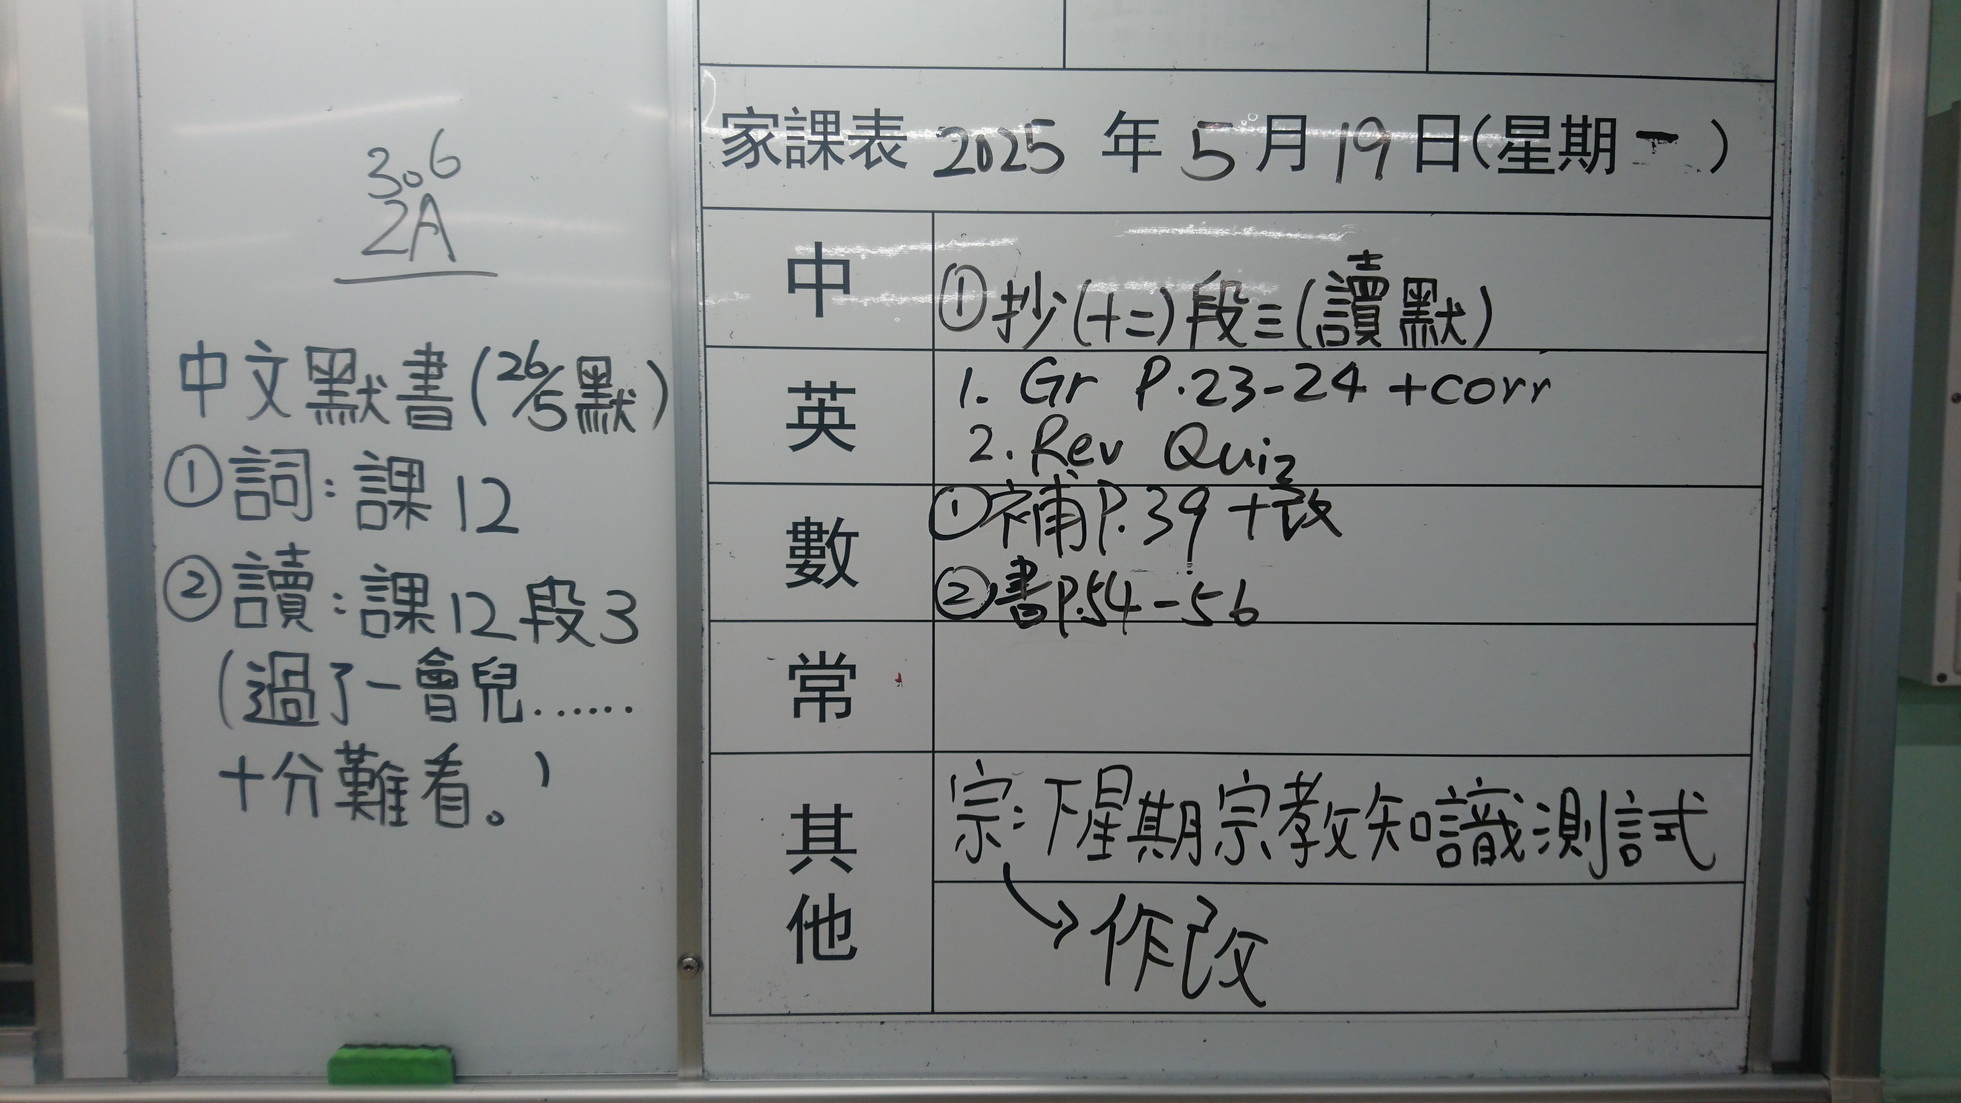 3.6
2A
中文默書(26/5默)
①詞:課12
②讀:課12段3
(過了一會兒......
十分難看。)
家課表 2025 年 5 月 19 日(星期一)
中
①抄(十二)段三(讀默)
英
1. Gr P.23-24 +corr
2. Rev Quiz
數
①補P.39+改
②書P.54-56
常
其他
宗:下星期宗教知識測試
→作改